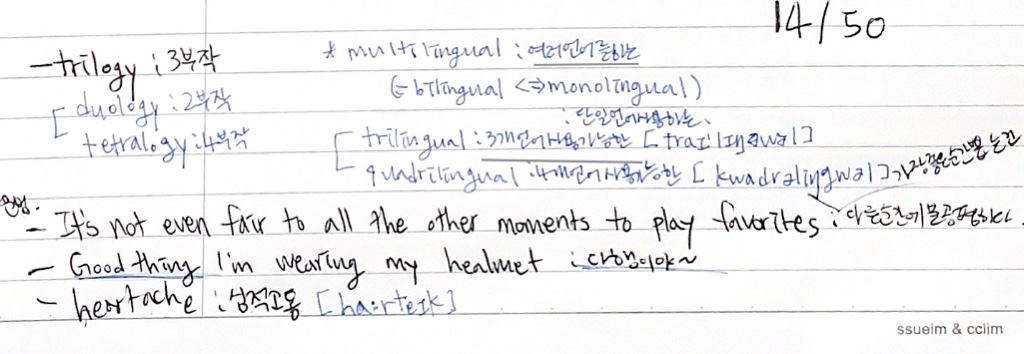 14/50
- trilogy : 3부작
[ duology : 2부작
tetralogy : 4부작
* multilingual : 여러언어를하는
(= bilingual <=> monolingual)
: 단일언어사용하는.
[ trilingual : 3개언어사용가능한 [traɪlɪŋwəl]
quadrilingual : 4개언어사용가능한 [kwadrəlɪŋwəl]
- It's not even fair to all the other moments to play favorites : 다른순간에불공평하다.
- Good thing I'm wearing my healmet : 다행이야~
- heartache : 심적고통 [ha:rteɪk]
ssueim & cclim